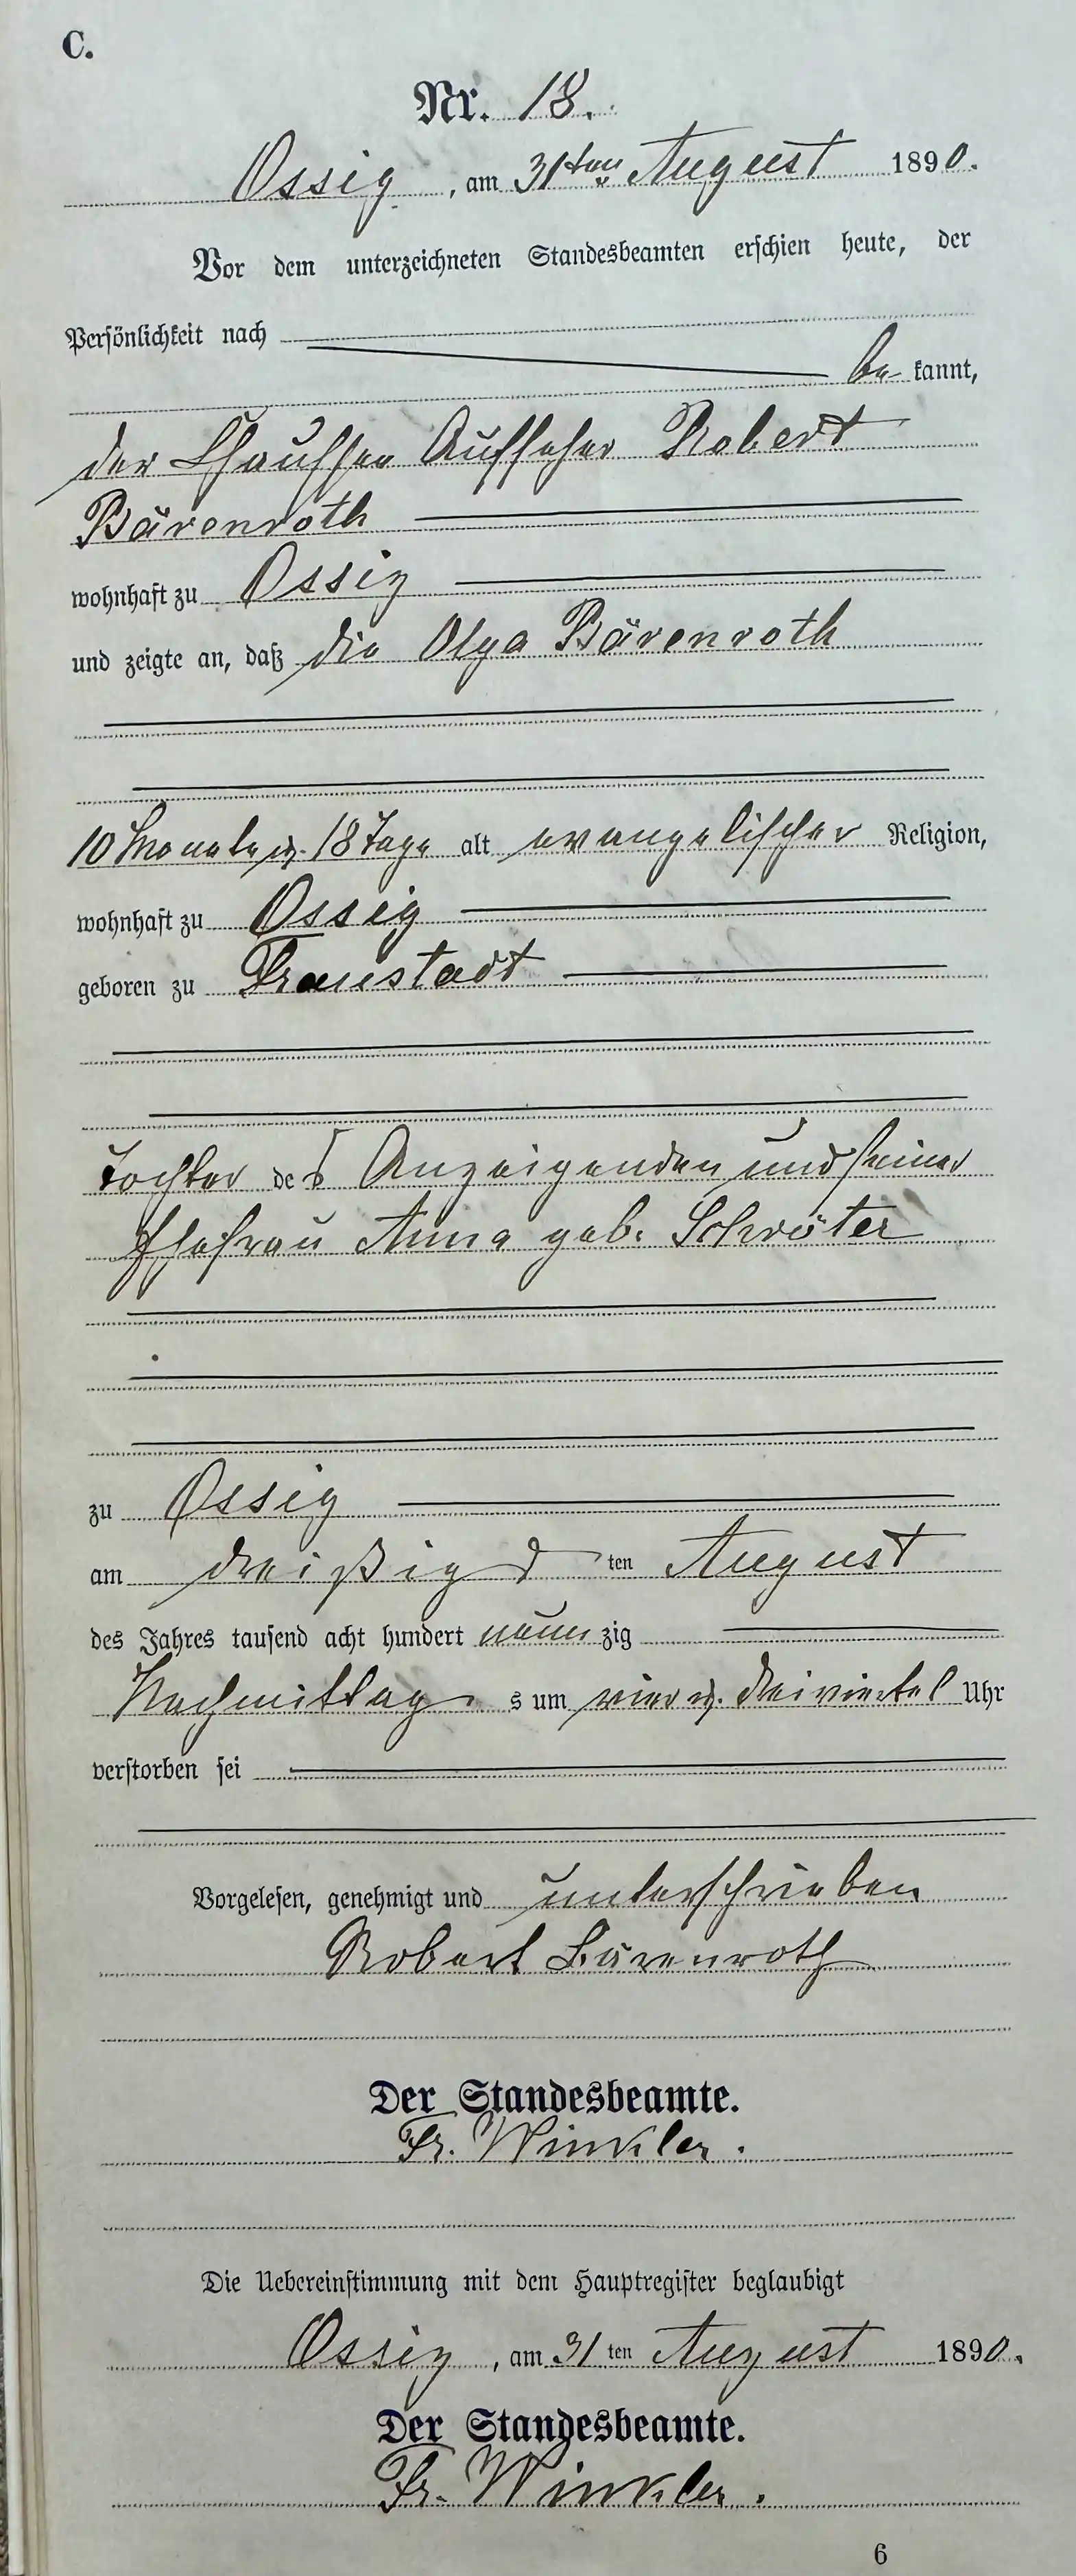 C.
Nr. 18.
Ossig, am 31ten August 1890.
Vor dem unterzeichneten Standesbeamten erschien heute, der
Persönlichkeit nach
be kannt,
der Chaussee Aufseher Robert
Bärenroth
wohnhaft zu Ossig
und zeigte an, daß die Olga Bärenroth
10 Monate u. 18 Tage alt evangelischer Religion,
wohnhaft zu Ossig
geboren zu Fraustadt
Tochter des Anzeigenden und seiner
Ehefrau Anna geb. Schröter
zu Ossig
am dreißig ten August
des Jahres tausend acht hundert neun zig
Nachmittag s um vier u. dreiviertel Uhr
verstorben sei
Vorgelesen, genehmigt und unterschrieben
Robert Bärenroth
Der Standesbeamte.
Fr. Winkler.
Die Uebereinstimmung mit dem Hauptregister beglaubigt
Ossig, am 31 ten August 1890.
Der Standesbeamte.
Fr. Winkler.
6